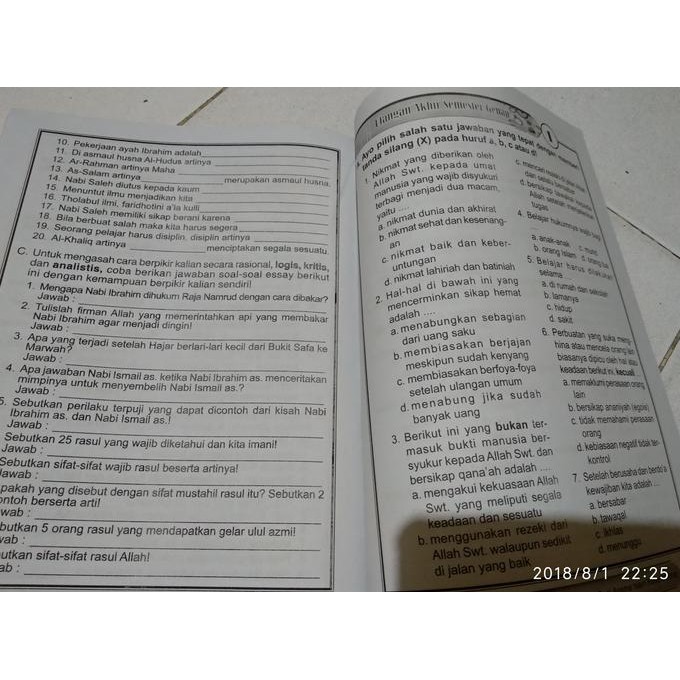 10. Pekerjaan ayah Ibrahim adalah
11. Di asmaul husna Al-Hudus artinya
12. Ar-Rahman artinya Maha
13. As-Salam artinya merupakan asmaul husna.
14. Nabi Saleh diutus kepada kaum
15. Menuntut ilmu menjadikan kita
16. Tholabul ilmi, faridhotini a'la kulli
17. Nabi Saleh memiliki sikap berani karena
18. Bila berbuat salah maka kita harus segera
19. Seorang pelajar harus disiplin, disiplin artinya
20. Al-Khaliq artinya menciptakan segala sesuatu.
C. Untuk mengasah cara berpikir kalian secara rasional, logis, kritis,
dan analistis, coba berikan jawaban soal-soal essay berikut
ini dengan kemampuan berpikir kalian sendiri!
1. Mengapa Nabi Ibrahim dihukum Raja Namrud dengan cara dibakar?
Jawab :
2. Tulislah firman Allah yang memerintahkan api yang membakar
Nabi Ibrahim agar menjadi dingin!
Jawab :
3. Apa yang terjadi setelah Hajar berlari-lari kecil dari Bukit Safa ke
Marwah?
Jawab :
4. Apa jawaban Nabi Ismail as. ketika Nabi Ibrahim as. menceritakan
mimpinya untuk menyembelih Nabi Ismail as.?
Jawab :
5. Sebutkan perilaku terpuji yang dapat dicontoh dari kisah Nabi
Ibrahim as. dan Nabi Ismail as.!
Jawab :
Sebutkan 25 rasul yang wajib diketahui dan kita imani!
Jawab :
Sebutkan sifat-sifat wajib rasul beserta artinya!
Jawab :
pakah yang disebut dengan sifat mustahil rasul itu? Sebutkan 2
ontoh berserta arti!
wab :
butkan 5 orang rasul yang mendapatkan gelar ulul azmi!
wab :
utkan sifat-sifat rasul Allah!
ab :
Ulangan Akhir Semester Genap
1
Ayo pilih salah satu jawaban yang tepat dengan
tanda silang (X) pada huruf a, b, c atau d!
1. Nikmat yang diberikan oleh
Allah Swt. kepada umat
manusia yang wajib disyukuri
terbagi menjadi dua macam,
yaitu ....
a. nikmat dunia dan akhirat
b. nikmat sehat dan kesenang-
an
c. nikmat baik dan keber-
untungan
d. nikmat lahiriah dan batiniah
2. Hal-hal di bawah ini yang
mencerminkan sikap hemat
adalah ....
a. menabungkan sebagian
dari uang saku
b. membiasakan berjajan
meskipun sudah kenyang
c. membiasakan berfoya-foya
setelah ulangan umum
d. menabung jika sudah
banyak uang
3. Berikut ini yang bukan ter-
masuk bukti manusia ber-
syukur kepada Allah Swt. dan
bersikap qana'ah adalah ....
a. mengakui kekuasaan Allah
Swt. yang meliputi segala
keadaan dan sesuatu
b. menggunakan rezeki dari
Allah Swt. walaupun sedikit
di jalan yang baik
tugas
4. Belajar hukumnya wajib bagi
a. anak-anak c. murid
b. orang Islam d. orang tua
5. Belajar harus dilakukan
selama ....
a. di rumah dan sekolah
b. lamanya
c. hidup
d. sakit
6. Perbuatan yang suka mengi-
hina atau mencela orang lain
biasanya dipicu oleh hal atau
keadaan berikut ini, kecuali
a. memaklumi perasaan orang
lain
b. bersikap ananiyah (egois)
c. tidak memahami perasaan
orang
d. kebiasaan negatif tidak ter-
kontrol
7. Setelah berusaha dan berdo'a
kewajiban kita adalah ....
a. bersabar
b. tawaqal
c. ikhlas
d. menunggu
2018/8/1 22:25